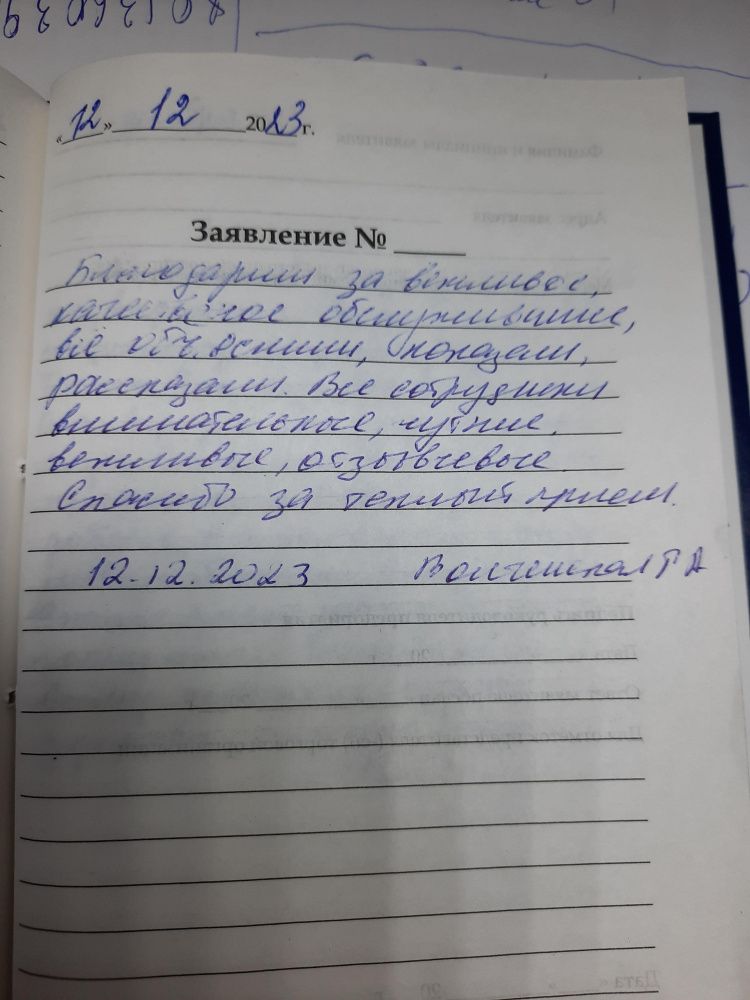 «12» 12 2023 г.
Заявление № ____
Благодарим за вежливое,
качественное обслуживание,
всё объяснили, показали,
рассказали. Все сотрудники
внимательные, чуткие,
вежливые, отзывчевые.
Спасибо за теплый прием.
12.12.2023